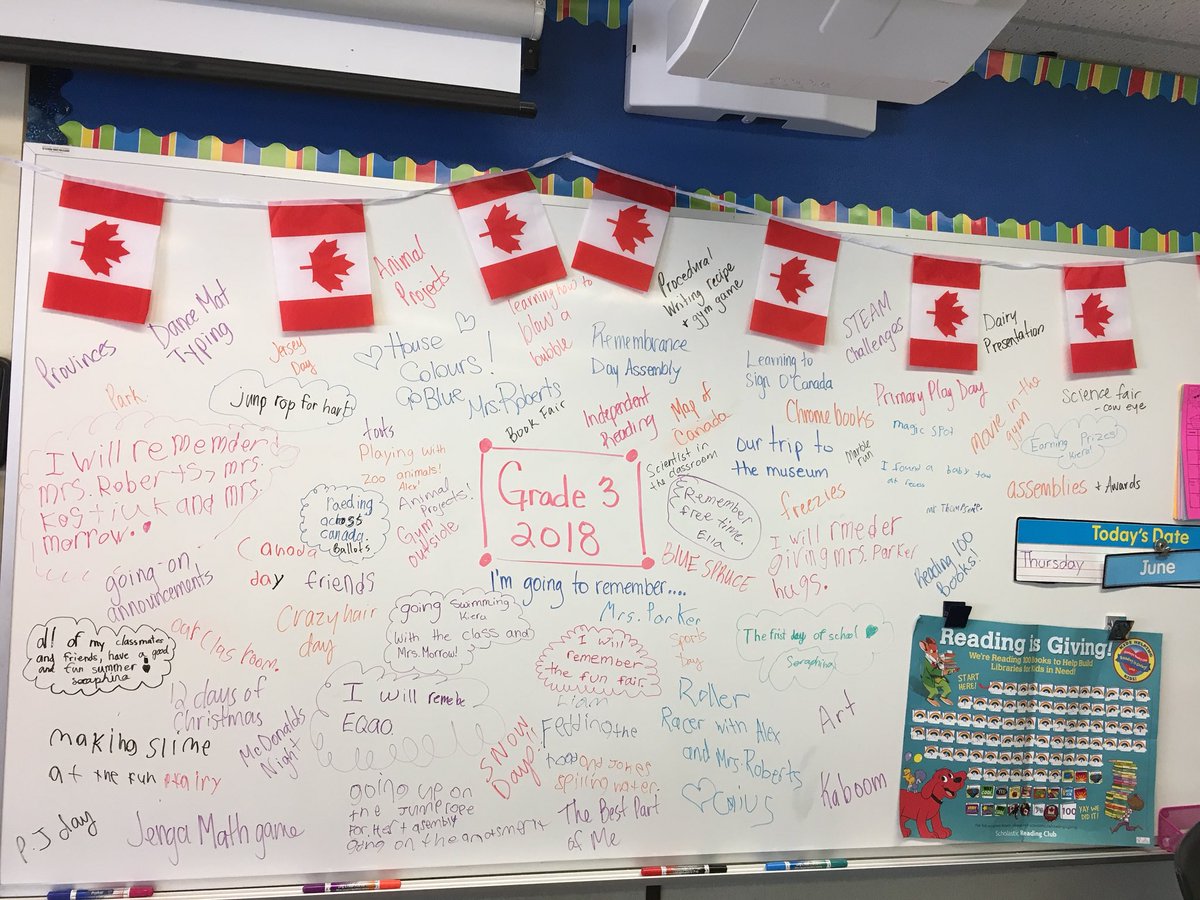 Provinces
Dance Mat
Typing
Jersey
Day
Animal
Projects
House
Colours!
Go Blue
learning how to
blow a
bubble
Procedural
Writing recipe
+ gym game
Remembrance
Day Assembly
Learning to
Sign O'Canada
STEAM
Challenges
Dairy
Presentation
Park
jump rop for hart
Mrs. Roberts
Book Fair
Independent
Reading
Map of
Canada
Chromebooks
Primary Play Day
magic spot
movie in the
gym
Science fair
- cow eye
Earning Prizes!
Kiera!
I will remember
mrs. Roberts, mrs.
Kostiuk and mrs.
morrow.
Playing with
zoo animals!
Alex!
Animal
Projects!
Gym
outside
Grade 3
2018
Scientist in
the classroom
our trip to
the museum
Marble
run
I found a baby
assemblies + Awards
across
canada.
Ballots
Remember
free time.
Ella
freezies
I will rmeder
giving mrs. Parker
hugs.
Mr Thompson
Reading 100
Books!
Today's Date
Thursday
June
going on
announcements
Canada
day
friends
BLUE SPRUCE
I'm going to remember....
all of my classmates
and friends, have a good
and fun summer
Seraphina
our class room.
Crazy hair
day
going swimming
Kiera
with the class and
Mrs. Morrow!
Mrs. Parker
Sports
Day
I will
remember
the fun fair.
Liam
The first day of school
Seraphina
12 days of
Christmas
McDonalds
Night
I will remebe
EQAO
SNOW
Day!
Feeding the
and Jones
spilling water.
Roller
Racer with Alex
and Mrs. Roberts
Art
making slime
at the fun
P.J day
Jenga Math game
going up on
the
for
going on the
The Best Part
of Me
Kaboom
Reading is Giving!
We're Reading 100 Books to Help Build
Libraries for Kids in Need!
START
HERE!
100
YAY WE
DID IT!
Scholastic Reading Club